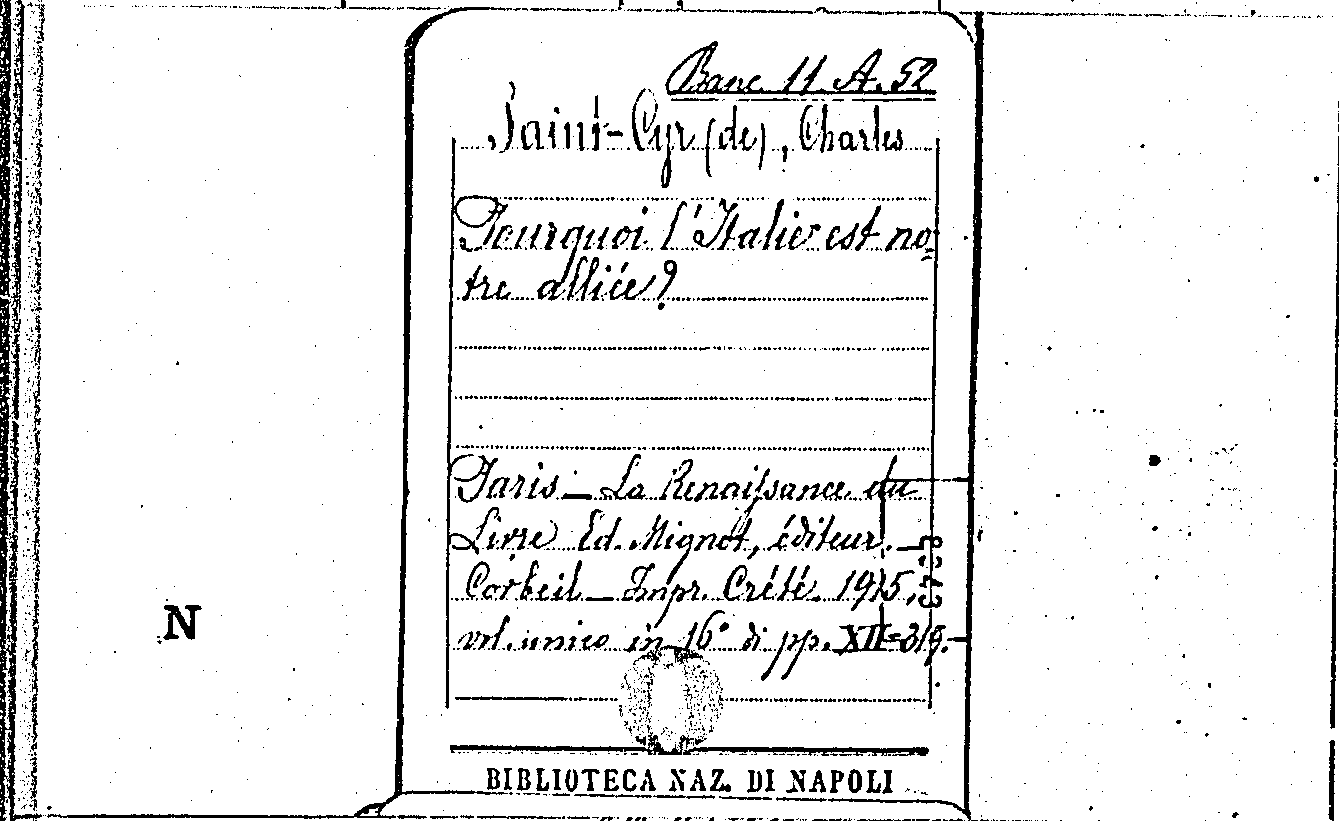 Banc. 11. A. 52
Saint-Cyr (de), Charles
Pourquoi l'Italie est no-
tre alliée?
Paris - La Renaissance du
Livre Ed. Mignot, éditeur. -
Corbeil - Impr. Crété. 1915,
vol. unico in 16° di pp. XII=319.
N
BIBLIOTECA NAZ. DI NAPOLI